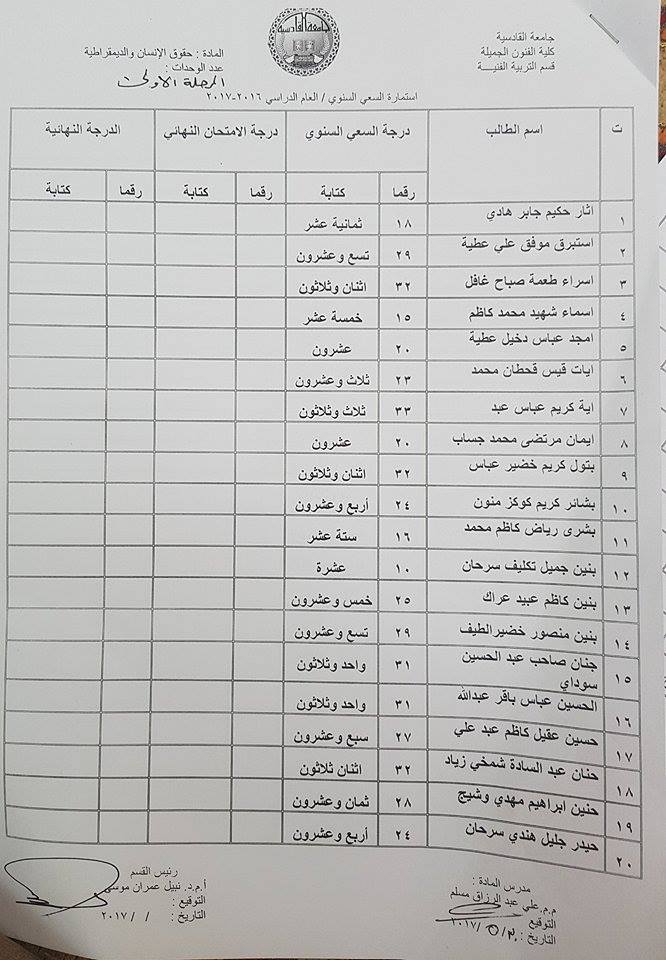 جامعة القادسية
كلية الفنون الجميلة
قسم التربية الفنيـــة
جامعة القادسية
المادة : حقوق الإنسان والديمقراطية
عدد الوحدات :
المرحلة الاولى
استمارة السعي السنوي / العام الدراسي ٢٠١٦-٢٠١٧
ت اسم الطالب درجة السعي السنوي درجة الامتحان النهائي الدرجة النهائية
رقما كتابة رقما كتابة رقما كتابة
١ اثار حكيم جابر هادي ١٨ ثمانية عشر
٢ استبرق موفق علي عطية ٢٩ تسع وعشرون
٣ اسراء طعمة صباح غافل ٣٢ اثنان وثلاثون
٤ اسماء شهيد محمد كاظم ١٥ خمسة عشر
٥ امجد عباس دخيل عطية ٢٠ عشرون
٦ ايات قيس قحطان محمد ٢٣ ثلاث وعشرون
٧ اية كريم عباس عبد ٣٣ ثلاث وثلاثون
٨ ايمان مرتضى محمد جساب ٢٠ عشرون
٩ بتول كريم خضير عباس ٣٢ اثنان وثلاثون
١٠ بشائر كريم كوكز منون ٢٤ أربع وعشرون
١١ بشرى رياض كاظم محمد ١٦ ستة عشر
١٢ بنين جميل تكليف سرحان ١٠ عشرة
١٣ بنين كاظم عبيد عراك ٢٥ خمس وعشرون
١٤ بنين منصور خضيرالطيف ٢٩ تسع وعشرون
١٥ جنان صاحب عبد الحسين ٣١ واحد وثلاثون
سوداي
١٦ الحسين عباس باقر عبدالله ٣١ واحد وثلاثون
١٧ حسين عقيل كاظم عبد علي ٢٧ سبع وعشرون
١٨ حنان عبد السادة شمخي زياد ٣٢ اثنان ثلاثون
١٩ حنين ابراهيم مهدي وشيج ٢٨ ثمان وعشرون
٢٠ حيدر جليل هندي سرحان ٢٤ أربع وعشرون
مدرس المادة :
م.م.علي عبد الرزاق مسلم
التوقيع
التاريخ : ٣٠/٥/٢٠١٧
رئيس القسم
أ.م.د. نبيل عمران موسى
التوقيع :
التاريخ : / /٢٠١٧